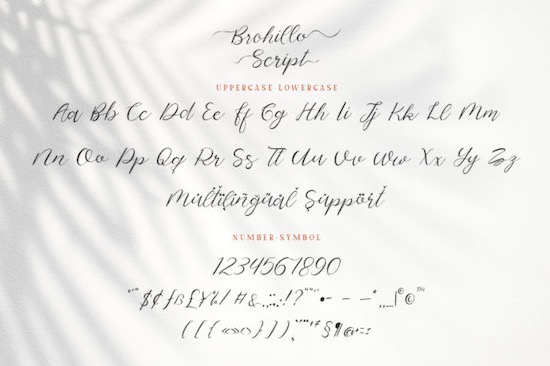 Brohillo
Script
UPPERCASE-LOWERCASE
Aa Bb Cc Dd Ee Ff Gg Hh Ii Jj Kk Ll Mm
Nn Oo Pp Qq Rr Ss Tt Uu Vv Ww Xx Yy Zz
Multilingual Support
NUMBER-SYMBOL
1234567890
$¢ƒß£¥%/#&.,:;!?
((({«»‹›})))
§¶@+=: